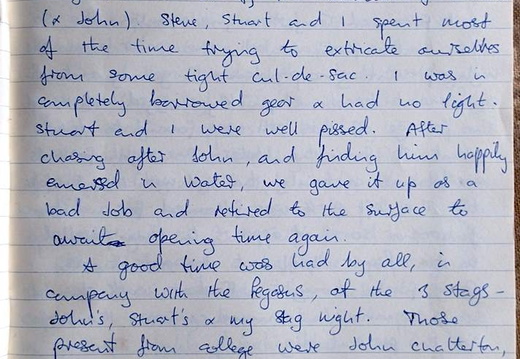 (& John). Steve, Stuart and I spent most
of the time trying to extricate ourselves
from some tight cul-de-sac. I was in
completely borrowed gear & had no light.
Stuart and I were well pissed. After
chasing after John, and finding him happily
emersed in water, we gave it up as a
bad job and retired to the surface to
await opening time again.
A good time was had by all, in
company with the Pegasus, at the 3 stags -
John's, Stuart's & my stag night. Those
present from college were John Chatterton,